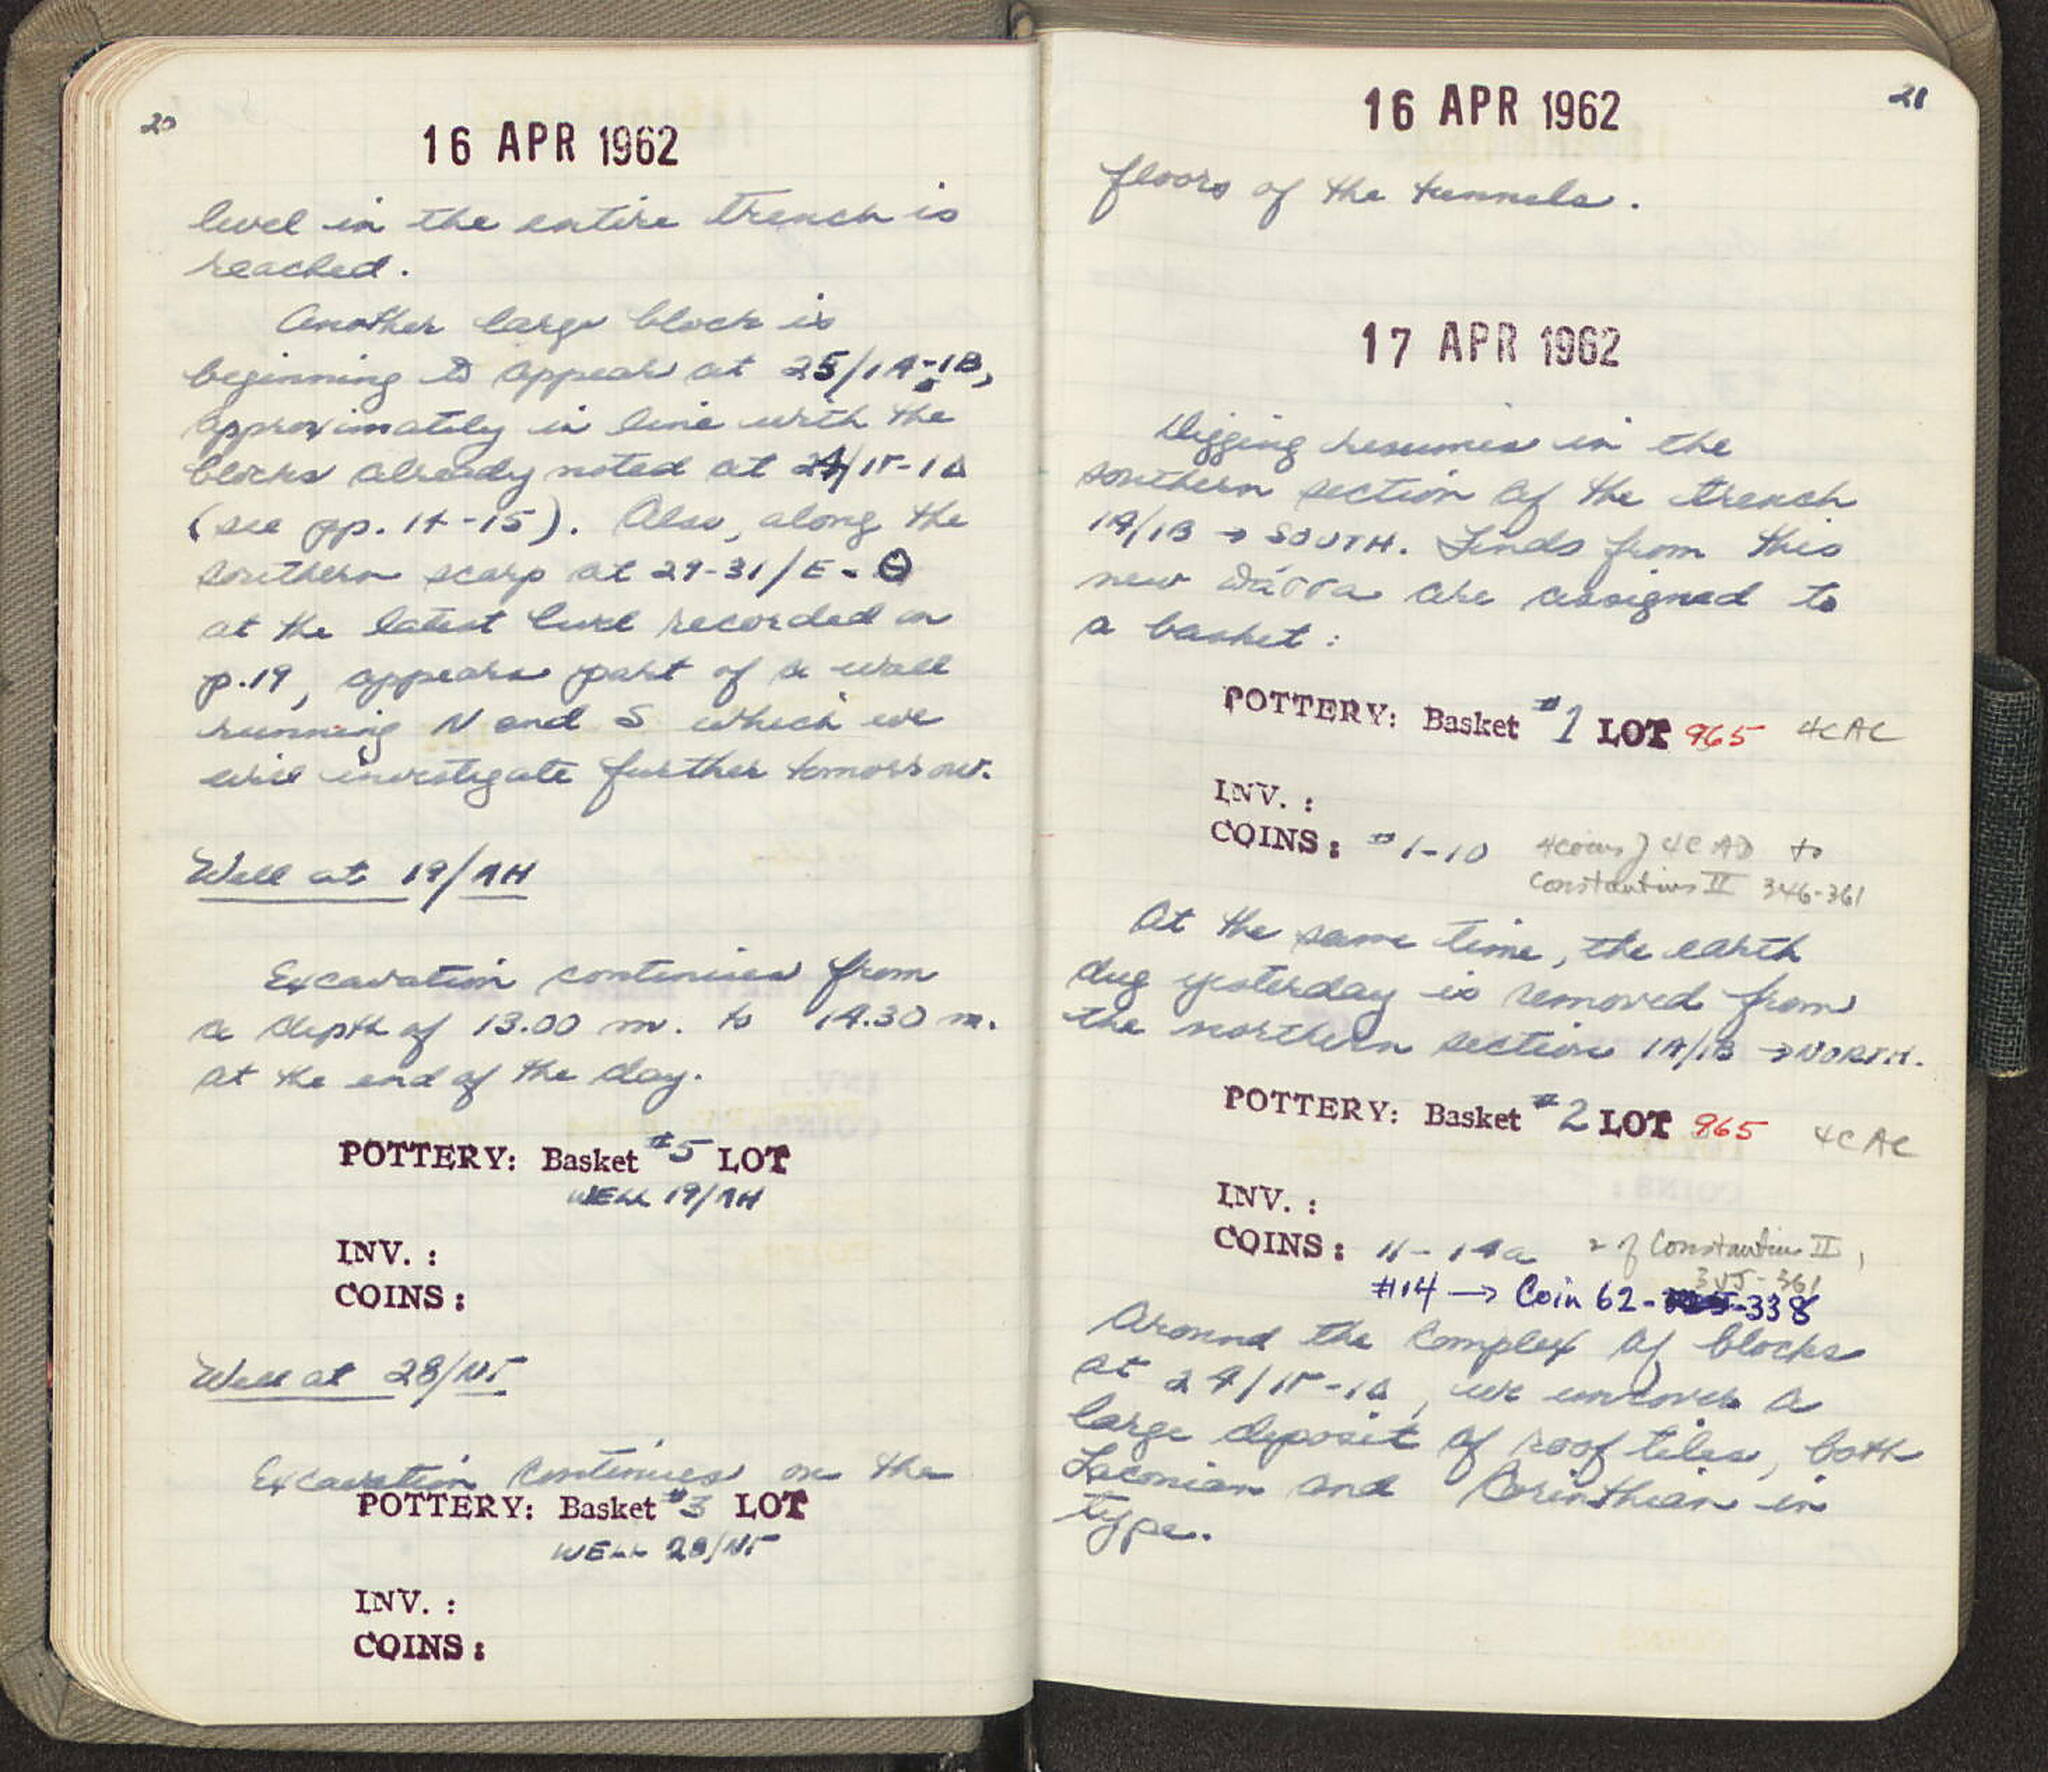 20
16 APR 1962
level in the entire trench is
reached.
Another large block is
beginning to appear at 25/1A-1B,
approximately in line with the
blocks already noted at 24/1Γ-1Δ
(see pp. 14-15). Also, along the
southern scarp at 29-31/E-Θ
at the latest level recorded on
p.19, appears part of a wall
running N and S which we
will investigate further tomorrow.
Well at 19/ΛH
Excavation continues from
a depth of 13.00 m. to 14.30 m.
at the end of the day.
POTTERY: Basket #5 LOT
WELL 19/ΛH
INV. :
COINS:
Well at 28/NΓ
Excavation continues on the
POTTERY: Basket #3 LOT
WELL 28/NΓ
INV. :
COINS:
21
16 APR 1962
floors of the tunnels.
17 APR 1962
Digging resumes in the
southern section of the trench
1A/1B → SOUTH. Finds from this
new πάσσα are assigned to
a basket:
POTTERY: Basket #1 LOT 965 4C AC
INV. :
COINS: #1-10 4 coins of 4C AD to
Constantius II 346-361
At the same time, the earth
dug yesterday is removed from
the northern section 1A/1B → NORTH.
POTTERY: Basket #2 LOT 965 4C AC
INV. :
COINS: 11-14a 2 of Constantius II,
-361
#14 → Coin 62-338
Around the complex of blocks
at 24/1Γ-1Δ, we uncover a
large deposit of roof tiles, both
Laconian and Corinthian in
type.